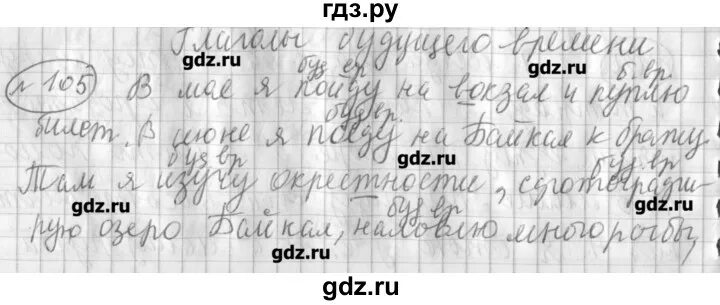 гдз.ру
Глаголы будущего времени
буд вр б. вр.
№ 105 В мае я пойду на вокзал и куплю
буд вр.
билет. В июне я поеду на Байкал к брату.
gdz.ru
буд вр буд вр
Там я изучу окрестности, сфотографи-
gdz.ru gdz.ru
буд вр
рую озеро Байкал, наловлю много рыбы,
gdz.ru